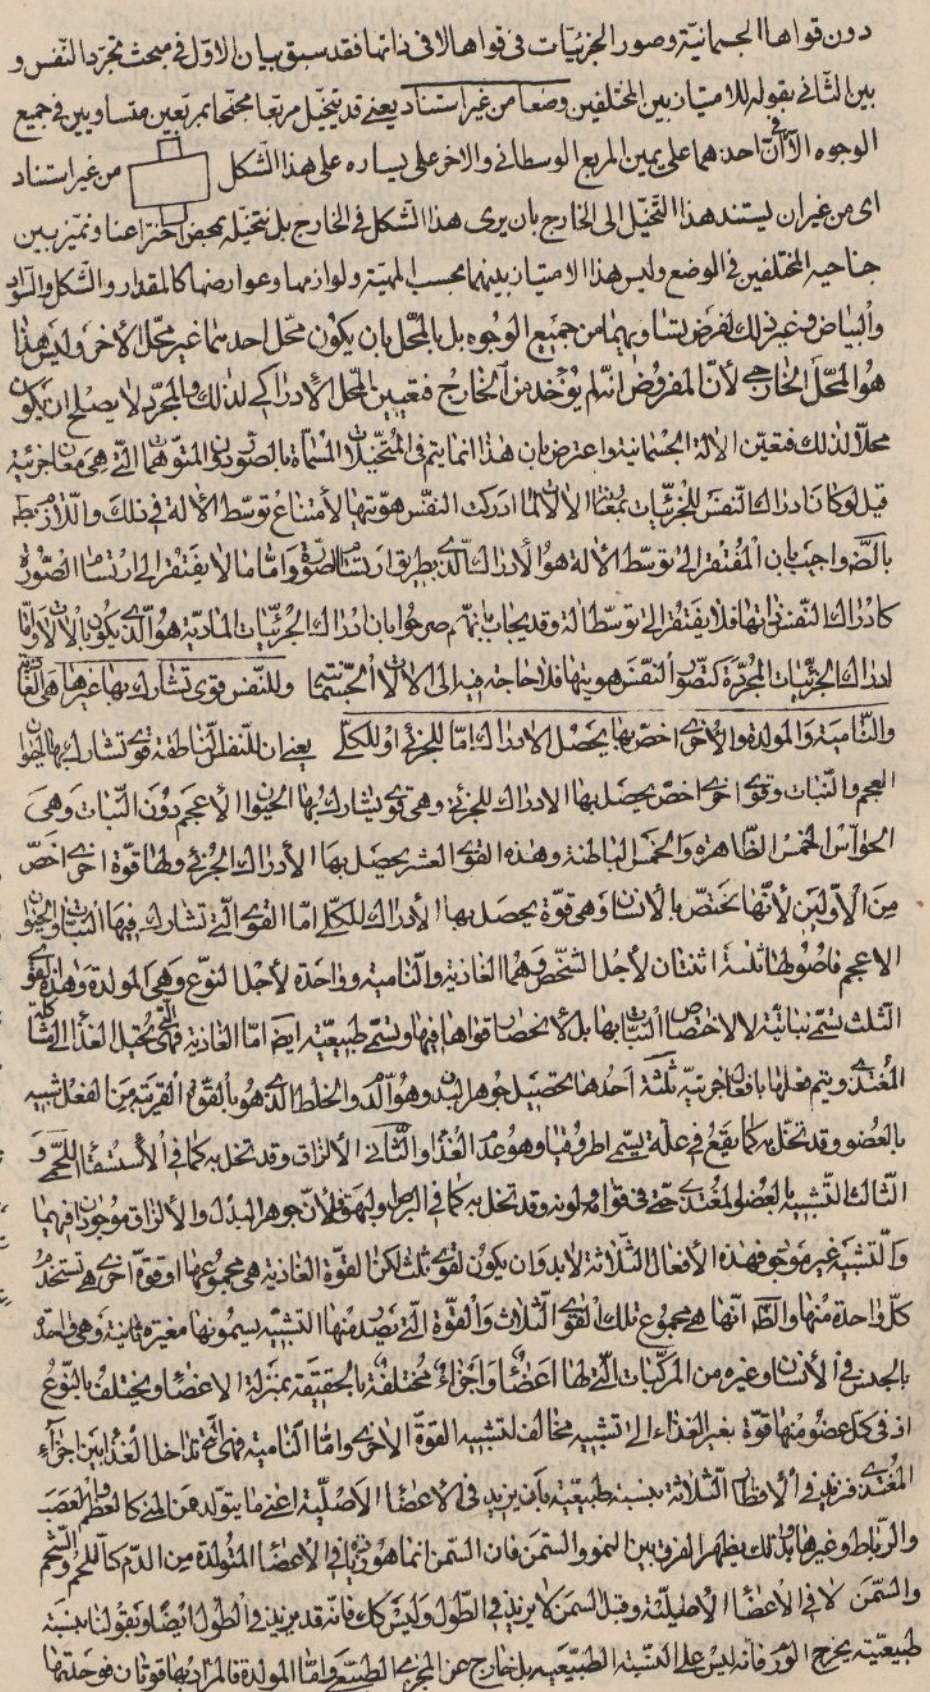 دون قواها الجسمانيّة وصور الجزئيّات فى قواها لا فى ذاتها فقد سبق بيان الاوّل فى مبحث تجرّد النّفس و
بين الثّانى بقوله للامتياز بين المختلفين وضعا من غير استناد يعنى قد يتخيّل مربّعا مجنّحا بمربّعين متساويين فى جميع
الوجوه الّا فى انّ احدهما على يمين المربع الوسطانى والاخر على يساره على هذا الشّكل من غير استناد
اى من غير ان يستند هذا التّخيّل الى الخارج بان يرى هذا الشّكل فى الخارج بل نتخيّله بمحض اختراعنا ونميّز بين
جناحيه المختلفين فى الوضع وليس هذا الامتياز بينهما بحسب المهيّة ولوازمها وعوارضها كالمقدار والشّكل والسّواد
والبياض وغير ذلك لفرض تساويهما من جميع الوجوه بل بالمحّل بان يكون محّل احدهما غير محّل الأخر وليس هذا
هو المحّل الخارجى لأنّ المفروض انّه لم يؤخذ من الخارج فتعيين المحّل الأدراكى لذلك والمجرّد لا يصلح ان يكون
محلّا لذلك فتعيّن الالة الجسمانية واعترض بان هذا انما يتم فى المتخيّلات المسمّاة بالصّور دون المتوهّمات الّتى هى معان جزئية
قيل لو كان ادراك النّفس للجزئيّات بمعنا الالات لما ادركت النفّس هوّيتها لأمتناع توسّط الألة فى ذلك والّلازم بط
بالضّه واجيب بان المفتقر الى توسّط الألة هو الأدراك الّذى بطريق ارتسام الصّورة وامّا ما لا يفتقر الى ارتسام الصّورة
كادراك النّفس ذاتها فلا يفتقر الى توسّط الة وقد يجاب بانّهم صرحوا بان ادراك الجزئيّات المادّية هو الّذى يكون بالألات وامّا
ادراك الجزئيّات المجرّدة كتصّور النّفس هويتها فلا حاجة فيه الى الالات الجسّمانيّة وللنّفس قوى تشارك بها غيرها هى الغاذية
والنّامية والمولدة والأخرى اخصّ بها يحصل الادراك امّا للجزئى او للكلّى يعنى ان للنّفس النّاطقة قوى تشارك بها الحيوان
العجم والنّبات وقوى اخرى اخصّ يحصل بها الادراك للجزئى وهى قوى يشارك بها الحيوان الأعجم دون النّبات وهى
الحوآس الخمس الظّاهرة والخمس الباطنة وهذه القوى العشر يحصل بها الأدراك الجزئى ولها قوّة اخرى اخصّ
من الأوّلين لأنّها تختصّ بالأنسان وهى قوّة يحصل بها الأدراك للكلّى امّا القوى الّتى تشارك فيها النبات والحيوان
الاعجم فاصولها ثلثة اثنتان لأجل الشخّص وهما الغاذية والنّامية وواحدة لأجل النوّع وهى المولدة وهذه القوى
الثلث تسمّى نباتيّة لا لاختصاص النّبات بها بل لأنحصار قواها فيها وتسمّى طبيعيّة ايضا امّا الغاذية فهى الّتى تحيل الغذاء الى مشاكلة
المغتذى ويتم فعلها بافعال جزئيّة ثلثة احدها تحصيل جوهر البدن وهو الدّم والخلط الّذى هو بالقوّة القريبة من الفعل شبيه
بالعضو وقد تخلّ به كما يقع فى علّة يسمّى اطروفيا وهو عدم الغذاء والثّانى الألزاق وقد تخل به كما فى الأستسقاء اللّحمى و
الثّالث التّشبيه بالعضو المغتذى حتّى فى قوامه ولونه وقد تخل به كما فى البرص والبهق فانّ جوهر البدل والألزاق موجودان فيهما
والتّشبيه غير موجود فهذه الأفعال الثّلاثة لابد وان يكون لقوى ثلث لكن القوّة الغاذية هى مجموعها او قوّة اخرى هى تستخدم
كلّ واحدة منها والظّ انّها هى مجموع تلك القوى الثّلاث والقوّة الّتى يصدر منها التشبّيه يسمونها مغيرة ثانية وهى واحدة
بالجنس فى الأنسان وغيره من المركّبات الّتى لها اعضاء واجزاء مختلفة بالحقيقة بمنزلة الاعضاء ويختلف بالنّوع
اذ فى كلّ عضو منها قوّة يغير الغذاء الى تشبيه مخالف لتشبيه القوّة الأخرى وامّا النّامية فهى الّتى تداخل الغذاء بين اجزآء
المغتذى فيزيد فى الأقطار الثّلاثة بنسبة طبيعيّة بأن يزيد فى الأعضاء الأصليّة اعنى ما يتولّد عن المنى كالعظم والعصب
والرّباط وغيرها وبذلك يظهر الفرق بين النمو والسّمن فان السّمن انما هو زيادة فى الاعضاء المتولدة من الدّم كاللحم والشّحم
والسّمن لا فى الأعضاء الأصليّة وقيل السمن لا يزيد فى الطّول وليس كك فانّه قد يزيد فى الطّول ايضا وبقولنا بنسبة
طبيعيّة يخرج الورم فانه ليس على النسّبة الطّبيعيّة بل خارج عن المجرى الطّبيعى وامّا المولدة فالمراد بها قوتان فوحدتها